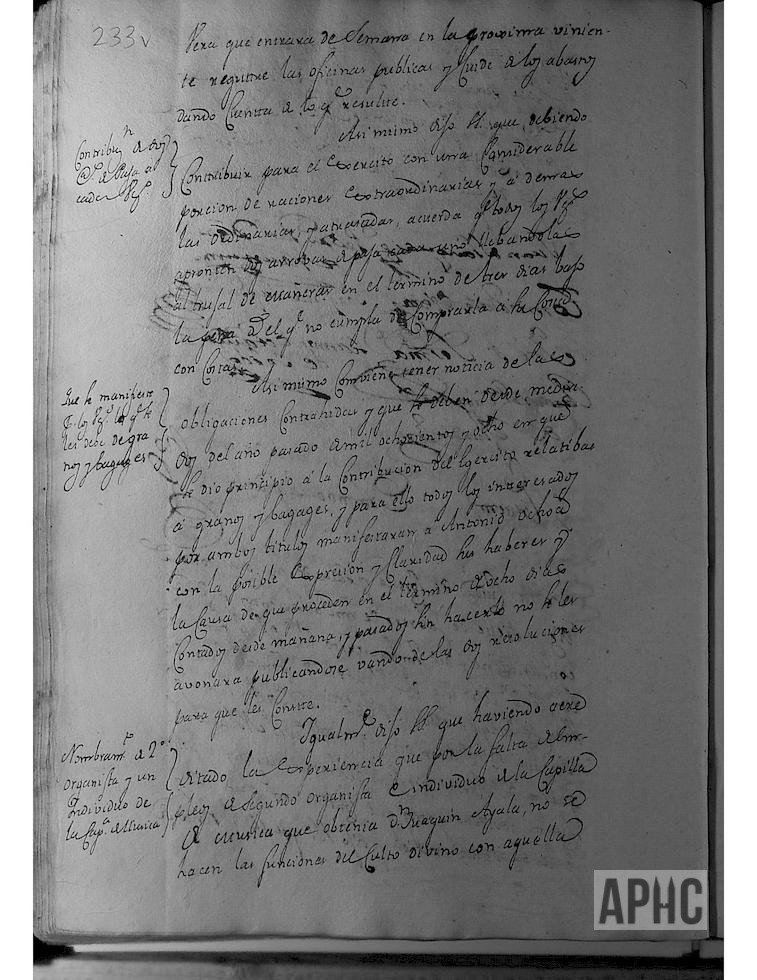 233v
Vera que entrara de Semana en la proxima vinien-
te registre las oficinas publicas y Cuide de los abastos
dando Cuenta de lo q.e resulte.
Contribu.n de dos
@.s de Paja a
cada V.o
Asi mismo dijo S. que debiendo
Contribuir para el Exercito con una Considerable
porcion de raciones Extraordinarias y a demas
las Ordinarias, y atrasadas, acuerda q.e todos los V.os
apronten dos arrobas de paja cada uno llebandolas
al trujal de en el termino de tres dias bajo
la pena de el q.e no cumpla de Comprarla a su Costa
con Costas.
Que se manifieste
los V.os lo q.e se
les debe de gra
nos y bagages
Asi mismo Combiene tener noticia de las
obligaciones Contrahidas y que se deben desde media
dos del año pasado de mil ochocientos y ocho en que
se dio principio á la Contribucion del Exercito relatibas
á granos y bagages, y para ello todos los interesados
por ambos titulos manifestaran a Antonio Ochoa
con la posible Expresion y Claridad sus haberes y
la Causa de que proceden en el termino de ocho dias
Contados desde mañana, y pasados sin hacerlo no se les
avonara publicandose vando de las dos resoluciones
para que les Conste.
Nombram.to de 2.o
organista y un
Individuo de
la Cap.a de Musica
Igualm.te dijo S. que haviendo acre
ditado la Experiencia que por la falta de Em-
pleos de Segundo Organista e individuo de la Capilla
de Musica que obtenia D.n Juaquin Ayala, no se
hacen las funciones del Culto divino con aquella
APHC